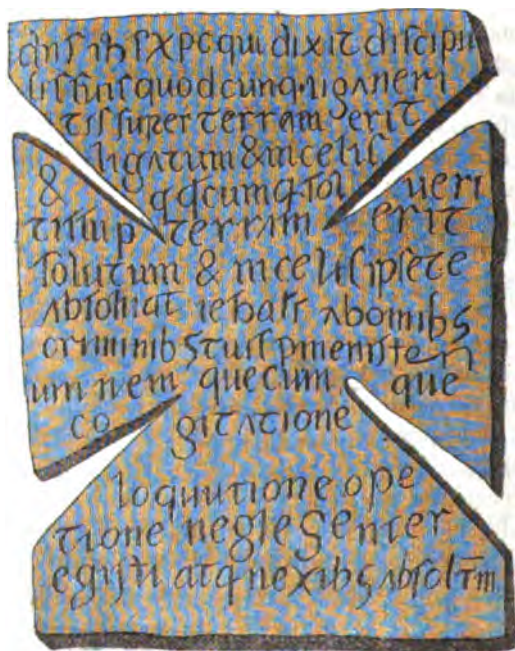 dns ihs xpc qui dixit discipu
lis suis quodcunq· ligaueri
tis super terram erit
ligatum & in celis
& qdcumq sol ueri
tis sup terram erit
solutum & in celis ipse te
absoluat ab omibs
criminibs tuis p ministeri
um nem quecum que
co gitatione
loquutione ope
tione neglegenter
egisti atq nexibs absoltm